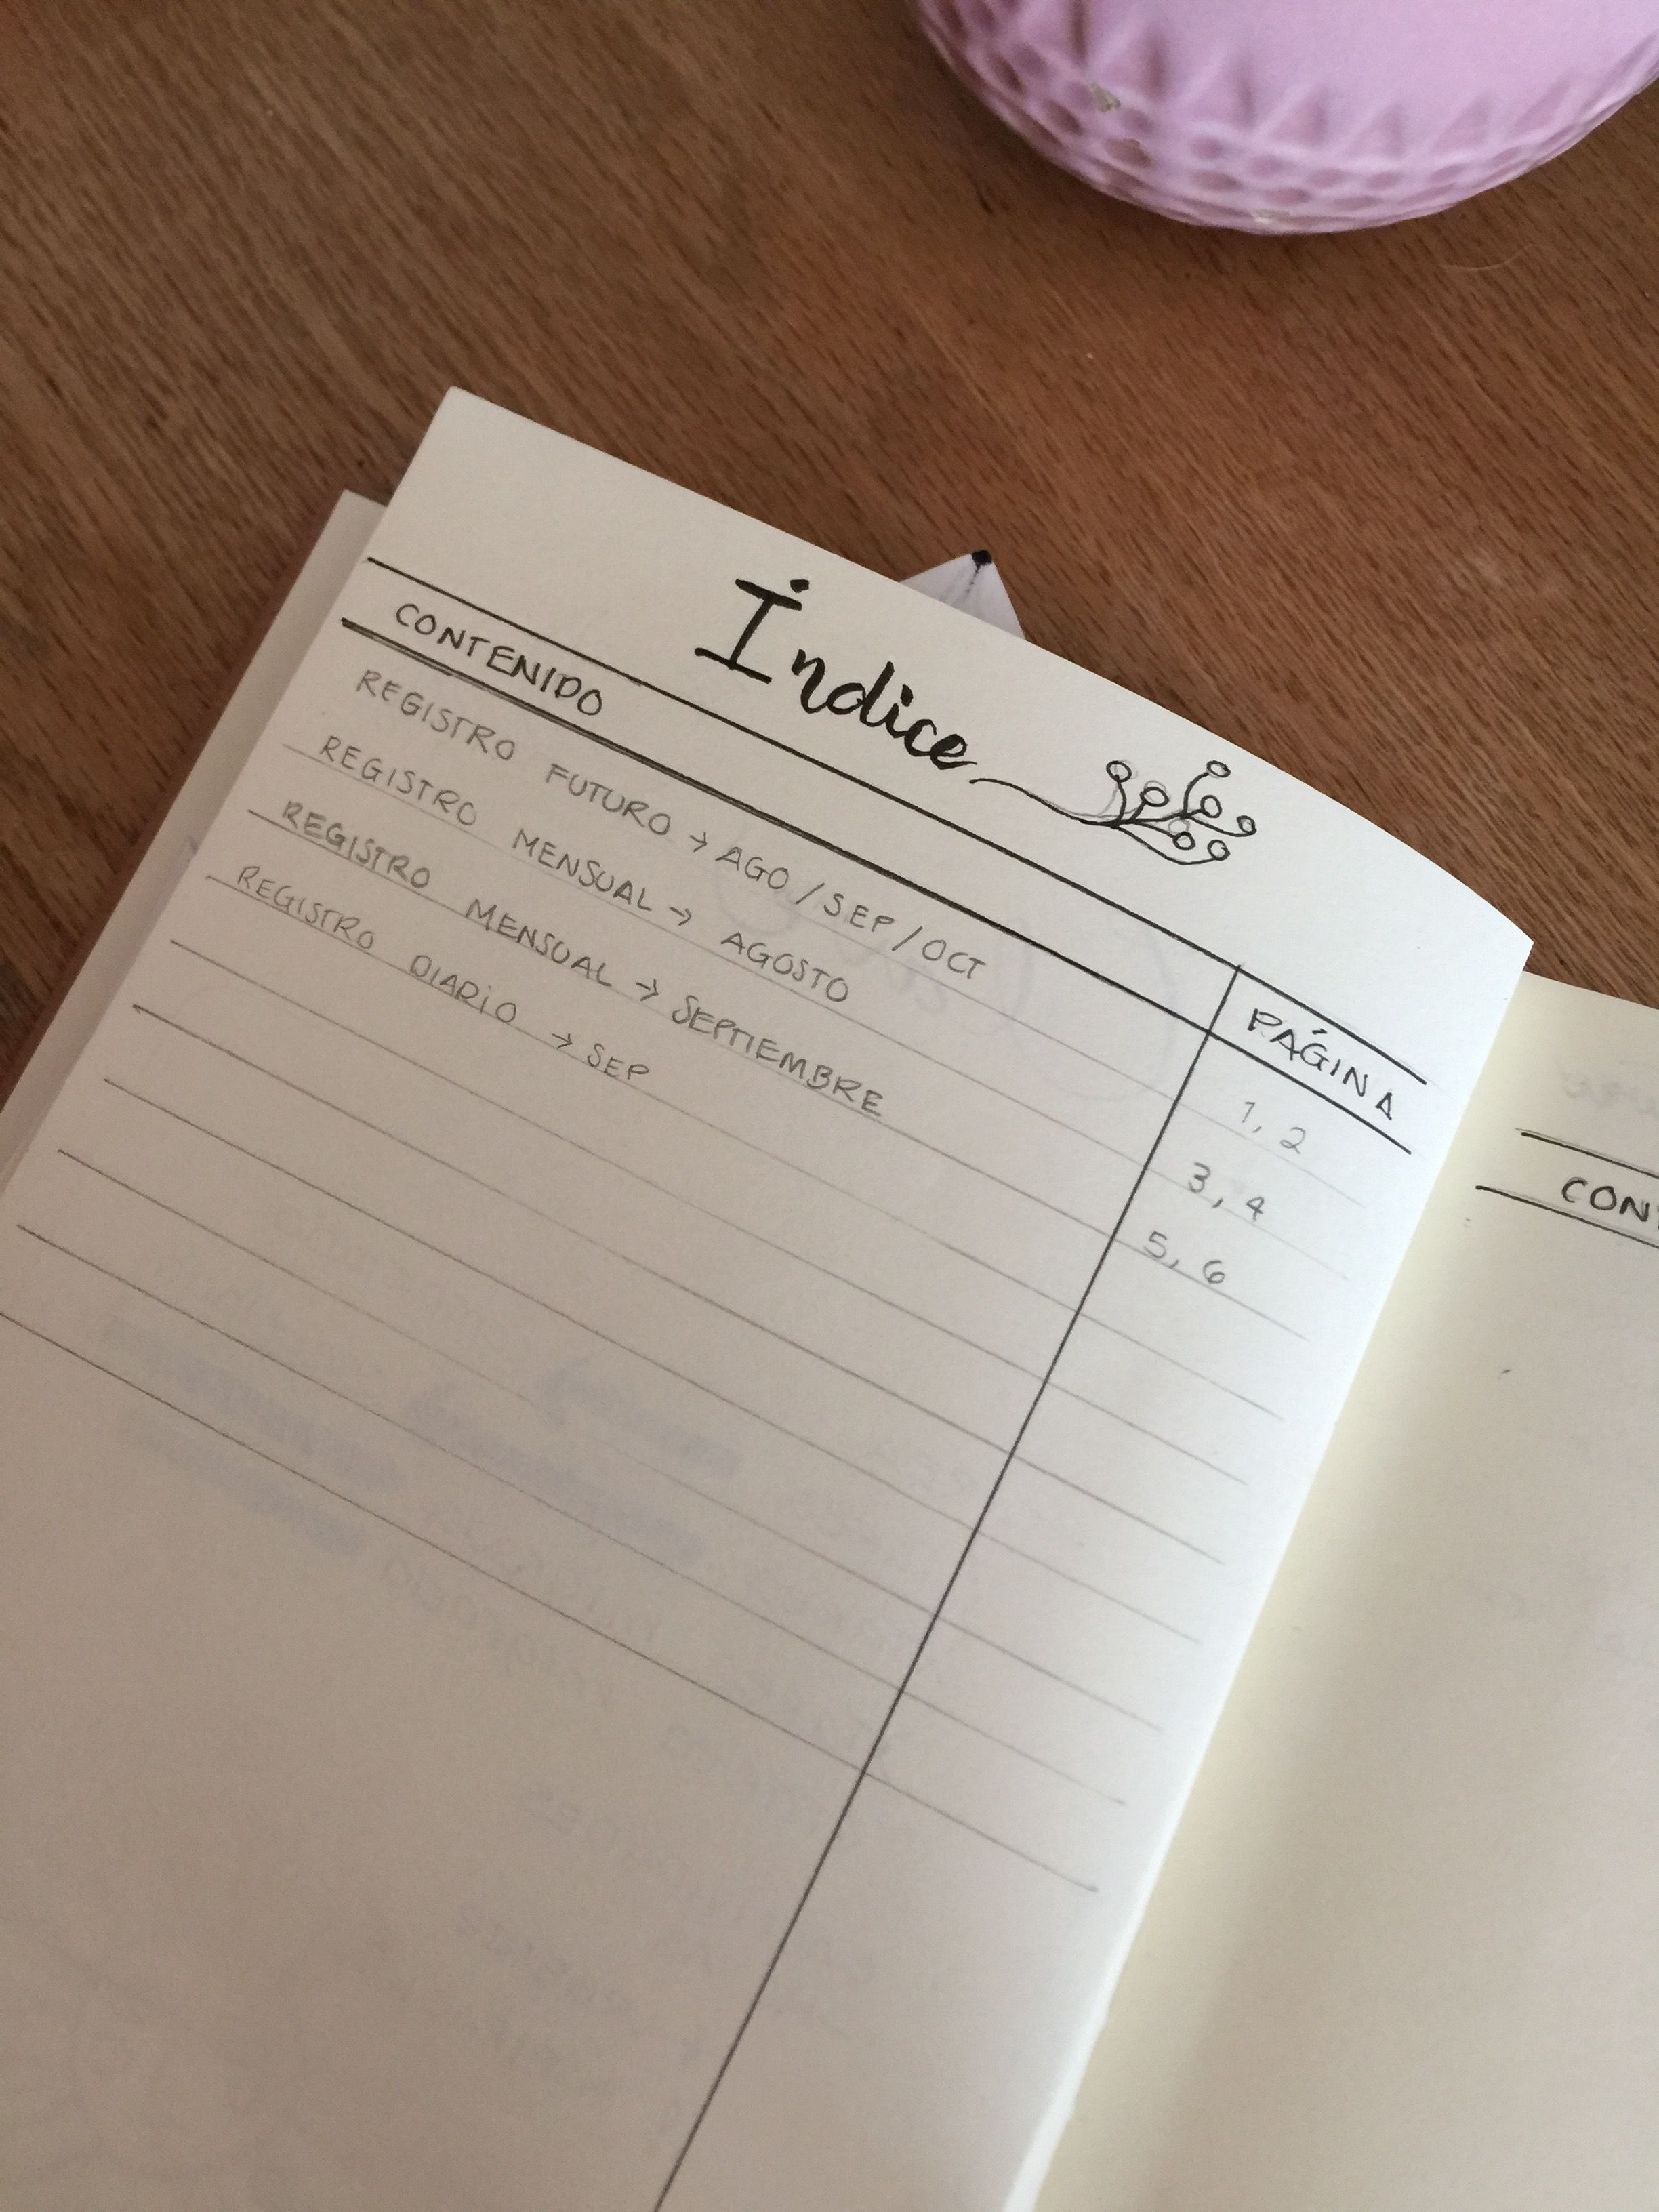 Índice
CONTENIDO PÁGINA
REGISTRO FUTURO → AGO / SEP / OCT 1, 2
REGISTRO MENSUAL → AGOSTO 3, 4
REGISTRO MENSUAL → SEPTIEMBRE 5, 6
REGISTRO DIARIO → SEP
CONT